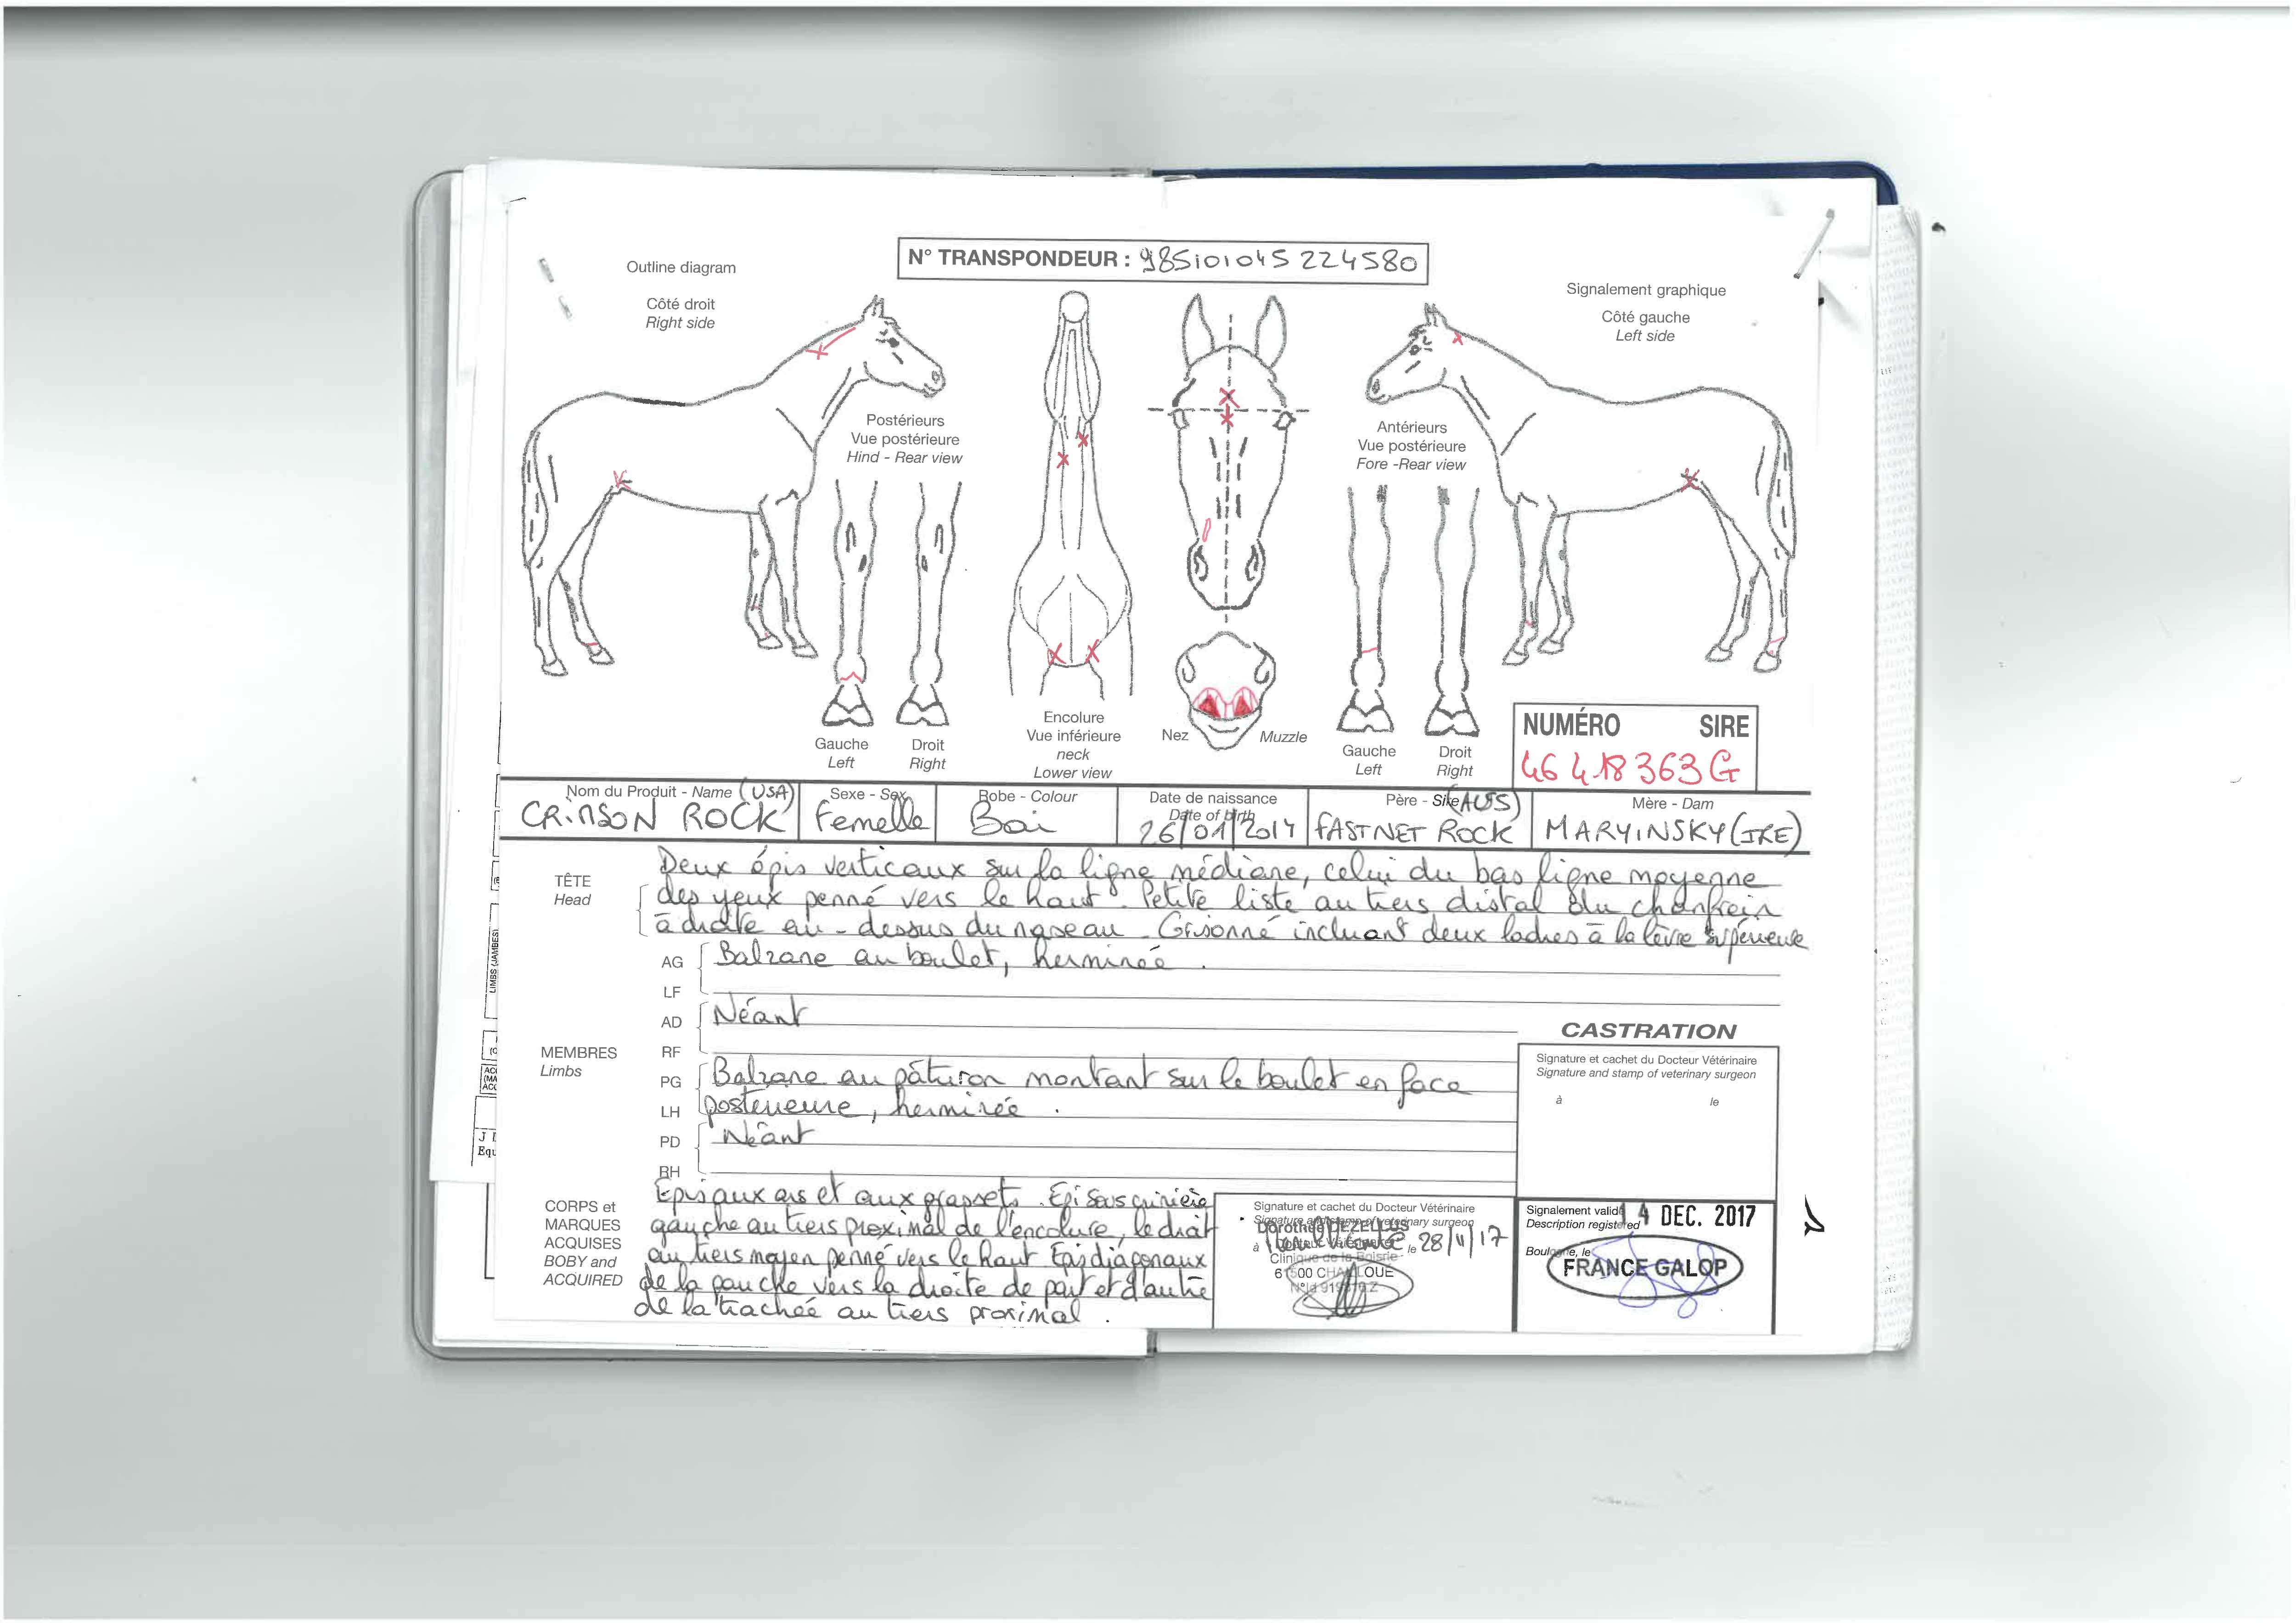 N° TRANSPONDEUR : 985101045224580
Outline diagram
Côté droit
Right side
Signalement graphique
Côté gauche
Left side
Postérieurs
Vue postérieure
Hind - Rear view
Antérieurs
Vue postérieure
Fore -Rear view
Gauche
Left
Droit
Right
Encolure
Vue inférieure
neck
Lower view
Nez
Muzzle
Gauche
Left
Droit
Right
NUMÉRO SIRE
46 418 363 G
Nom du Produit - Name (USA)
CRiMSON ROCK
Sexe - Sex
Femelle
Robe - Colour
Bai
Date de naissance
Date of birth
26/01/2014
Père - Sire (AUS)
FASTNET ROCK
Mère - Dam
MARYINSKY (IRE)
TÊTE
Head
Deux épis verticaux sur la ligne médiane, celui du bas ligne moyenne
des yeux penné vers le haut. Petite liste au tiers distal du chanfrein
à droite au-dessus du naseau - Grisonné incluant deux ladres à la lèvre supérieure
MEMBRES
Limbs
AG
LF
Balzane au boulet, herminée.
AD
RF
Néant
PG
LH
Balzane au pâturon montant sur le boulet en face
postérieure, herminée.
PD
RH
Néant
CASTRATION
Signature et cachet du Docteur Vétérinaire
Signature and stamp of veterinary surgeon
à le
CORPS et
MARQUES
ACQUISES
BOBY and
ACQUIRED
Epis aux ars et aux grassets. Epi sous crinière
gauche au tiers proximal de l'encolure, le droit
au tiers moyen penné vers le haut Epis diagonaux
de la gauche vers la droite de part et d'autre
de la trachée au tiers proximal.
Signature et cachet du Docteur Vétérinaire
Signature and stamp of veterinary surgeon
Dorothée DEZELLUS
Docteur Vétérinaire
à le 28/11/17
Clinique de la Boisrie
61500
Signalement validé
Description registered
4 DEC. 2017
Boulogne, le
FRANCE GALOP
LIMBS (JAMBES)